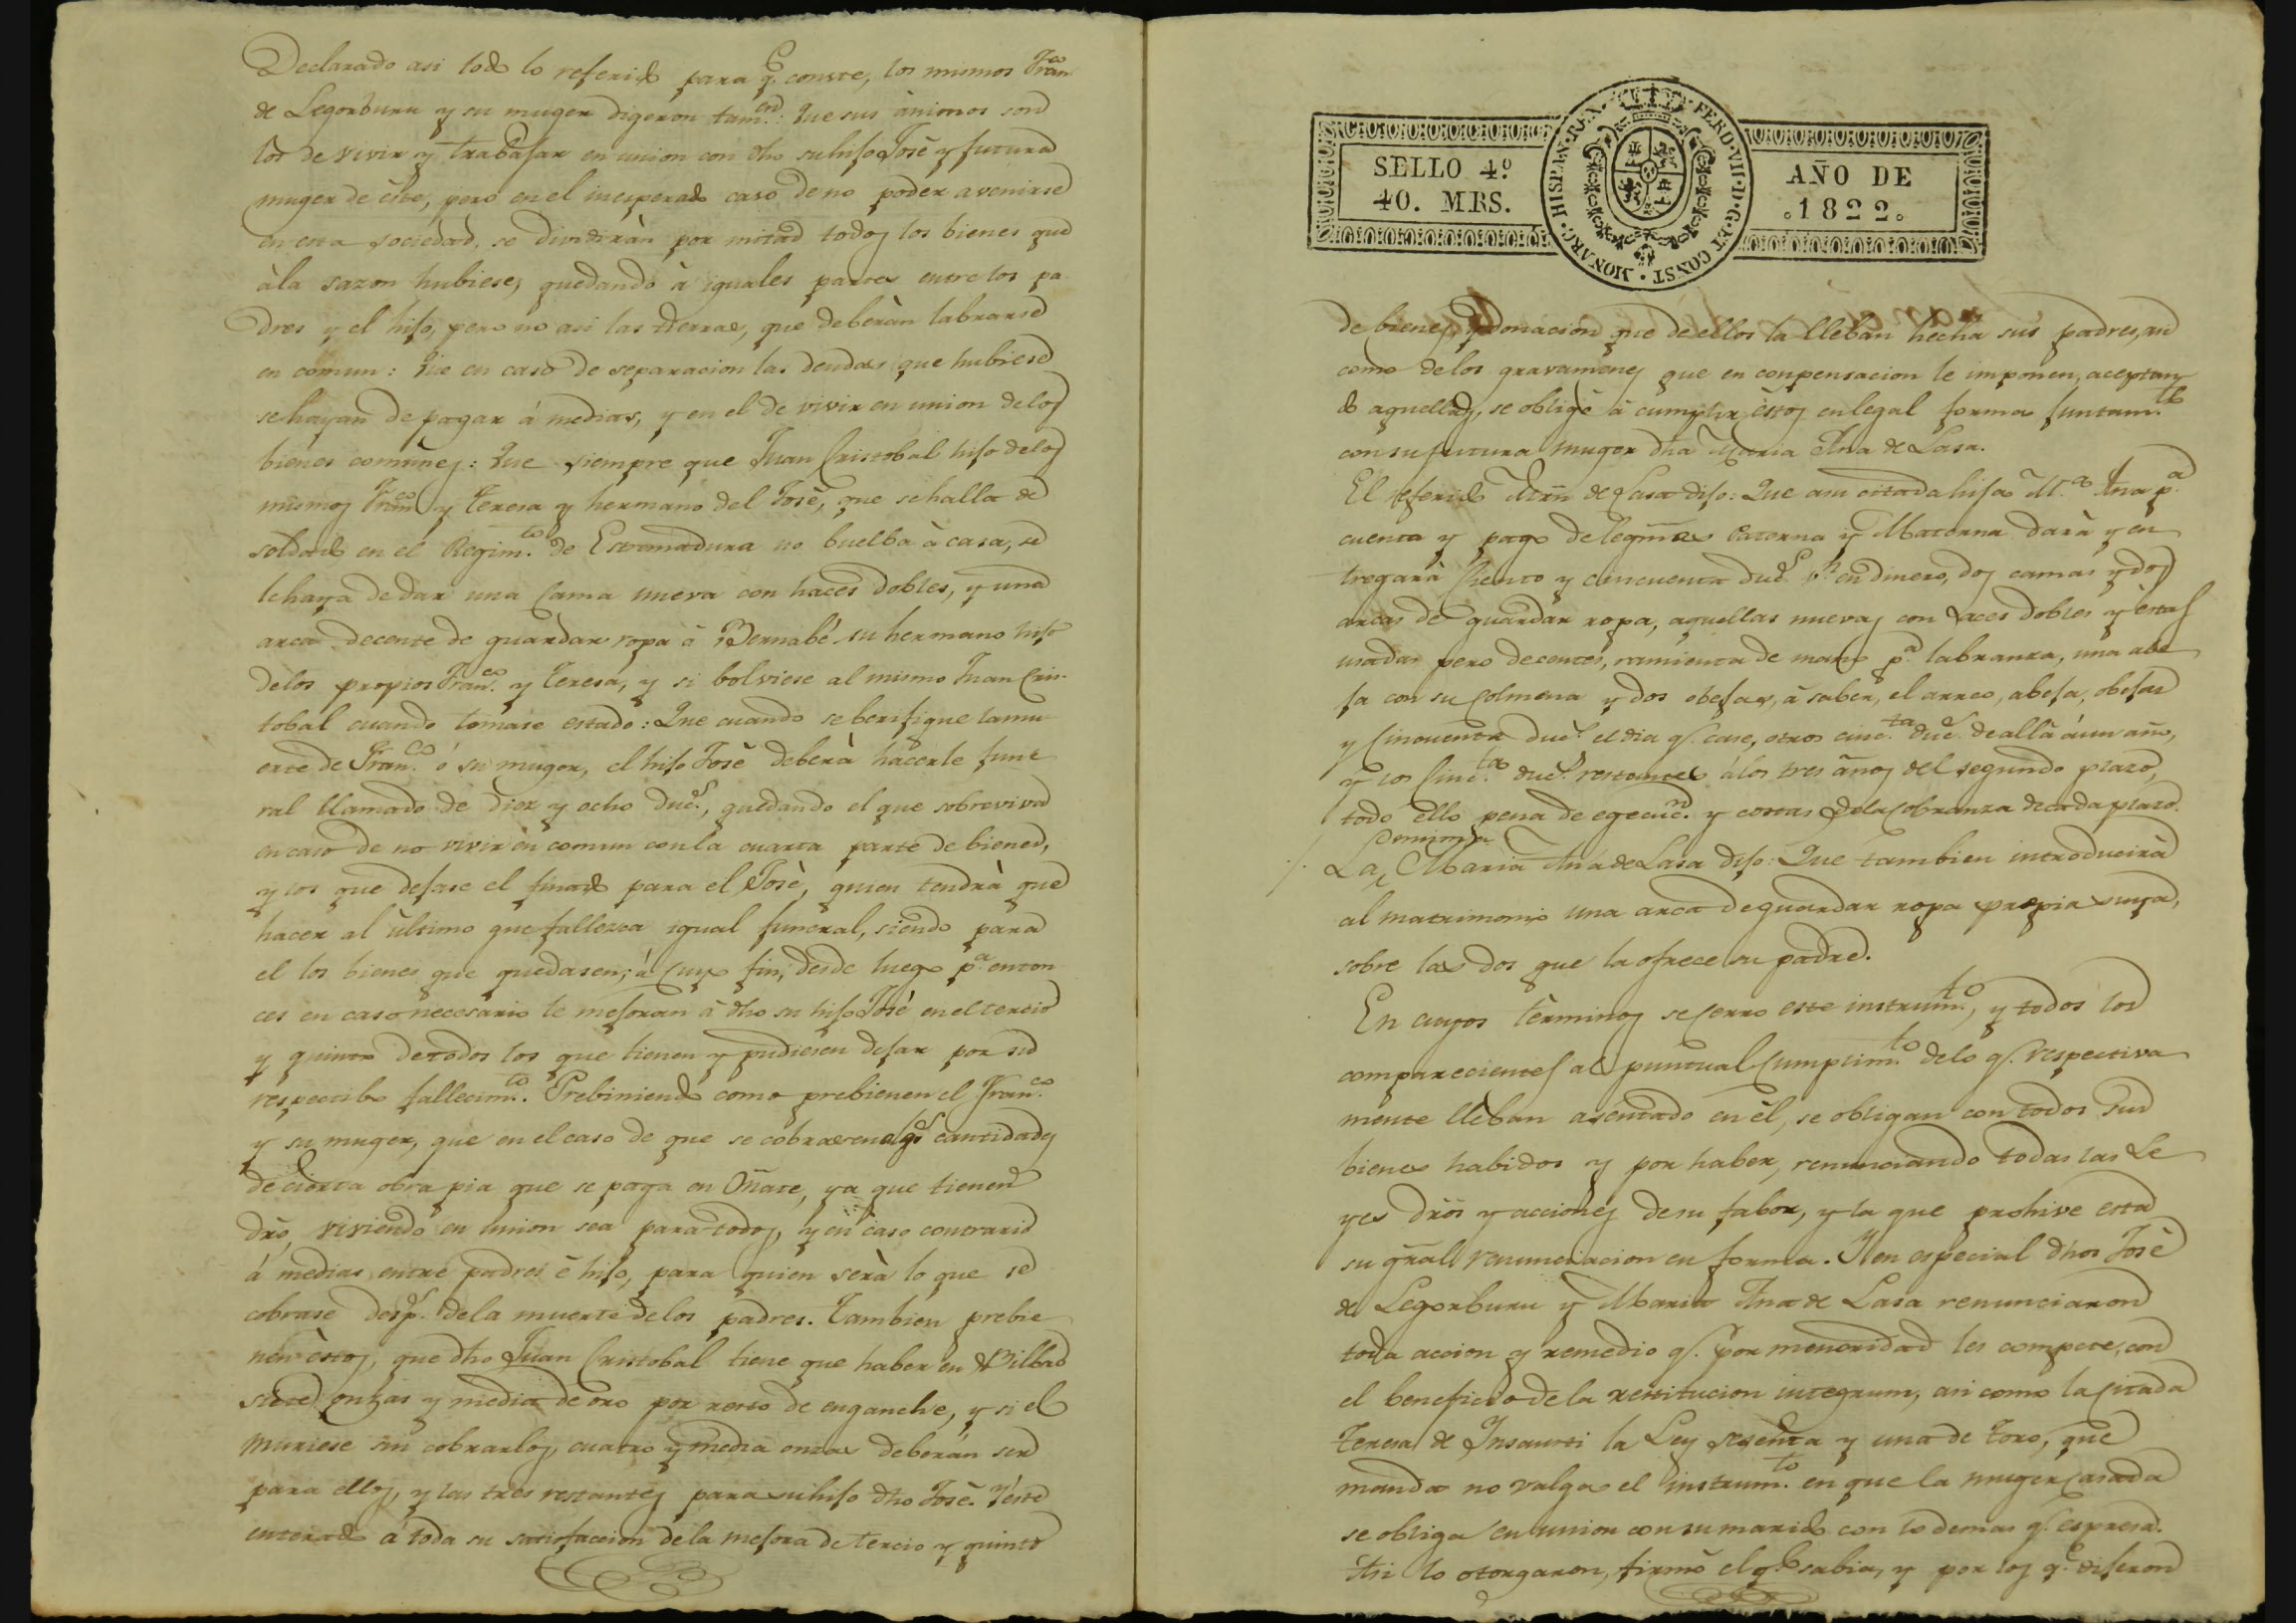 Declarado asi todo lo referido para q.e conste, los mismos Fran.co
de Legorburu y su muger digeron tam.en: Que sus ànimos son
los de vivir y trabajar en union con dho su hijo José y futura
muger de éste, pero en el inesperado caso de no poder avenirse
en esta sociedad, se dividiràn por mitad todos los bienes que
àla sazon hubiese, quedando à iguales partes entre los pa
dres y el hijo, pero no asi las tierras, que deberàn labrarse
en comun: Que en caso de separacion las deudas que hubiese
se hayan de pagar á medias, y en el de vivir en union delos
bienes comunes: Que siempre que Juan Cristobal hijo delos
mismos Fran.co y Teresa y hermano del José, que se halla de
soldado en el Regim.to de Estremadura no buelba à casa, se
le haya de dar una Cama nueva con haces dobles, y una
arca decente de guardar ropa à Bernabé su hermano hijo
delos propios Fran.co y Teresa, y si bolviese al mismo Juan Cris-
tobal cuando tomase estado: Que cuando se berifique la mu
erte de Fran.co ó su muger, el hijo José deberà hacerle fune
ral llamado de diez y ocho duc.s, quedando el que sobreviva
en caso de no vivir en comun con la cuarta parte de bienes,
y los que dejase el finado para el José, quien tendrà que
hacer al último que fallezca igual funeral, siendo para
el los bienes que quedasen; á cuyo fin, desde luego p.a enton
ces en caso necesario le mejoran à dho su hijo José en el tercio
y quinto de todos los que tienen y pudiesen dejar por su
respectibo fallecim.to. Prebiniendo como prebienen el Fran.co
y su muger, que en el caso de que se cobrasen alg.s cantidades
de cierta obra pia que se paga en Oñate, ya que tienen
dro, viviendo en union sea para todos, y en caso contrario
á medias entre padres è hijo, para quien serà lo que se
cobrase desp.s dela muerte delos padres. Tambien prebie
nen èstos, que dho Juan Cristobal tiene que haber en Bilbao
siete onzas y media de oro por resto de enganche, y si el
muriese sin cobrarlos, cuatro y media onzas deberán ser
para ellos, y las tres restantes para su hijo dho José. Y éste
enterado á toda su satisfaccion dela mejora de tercio y quinto
SELLO 4º
40. MRS.
HISPAN. REX. FERD. VII. D. G. ET CONST. MONARC.
AÑO DE
1822
de bienes y donacion que de ellos la lleban hecha sus padres, asi
como delos gravamenes que en conpensacion le imponen, aceptan
do aquellas, se obligè à cumplir èstos en legal forma juntam.te
con su futura muger dha Maria Ana de Lasa.
El referido Mrn de Lasa dijo: Que a su citada hija M.a Ana p.a
cuenta y pago de legmas Paterna y Materna darà y en
tregarà Ciento y cincuenta duc.s v.n en dinero, dos camas y dos
arcas de guardar ropa, aquellas nuevas con haces dobles y èstas
usadas pero decentes, ramienta de mano p.a labranza, una abe
ja con su colmena y dos obejas, à saber, el arreo, abeja, obejas
y Cincuenta duc.s el dia q.e case, otros cinc.ta duc.s de allà á un año,
y los Cinc.ta duc.s restantes álos tres años del segundo plazo,
todo ello pena de egecuc.n y costas dela cobranza de cada plazo.
La Maria Ana de Lasa dijo: Que tambien introducirà
al matrimonio una arca de guardar ropa propia suya,
sobre las dos que la ofrece su padre.
En cuyos tèrminos se cerro este instrum.to, y todos los
comparecientes al puntual cumplim.to delo q.e respectiva
mente lleban asentado en èl, se obligan con todos sus
bienes habidos y por haber, renunciando todas las Le
yes dros y acciones de su fabor, y la que prohive esta
su gral renunciacion en forma. Y en especial dhos José
de Legorburu y Maria Ana de Lasa renunciaron
toda accion y remedio q.e por menoridad les compete, con
el beneficio de la restitucion integrum, asi como la citada
Teresa de Insausti la Ley sesenta y una de Toro, que
manda no valga el instrum.to en que la muger casada
se obliga en union con su marido con lo demas q.e espresa.
Asi lo otorgaron, firmò el q.e sabia, y por los q.e dijeron